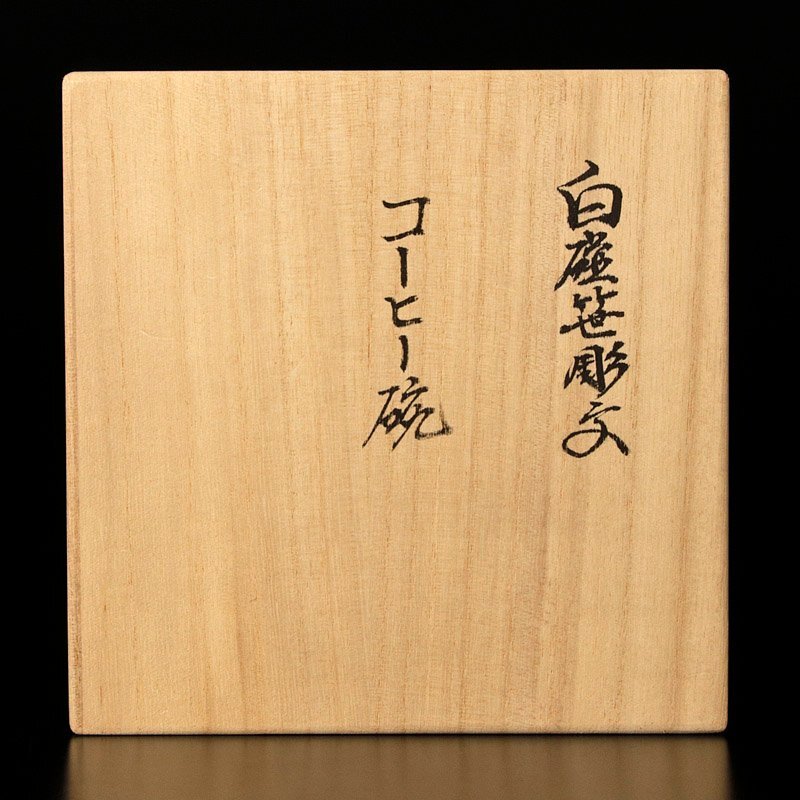 白磁笹彫文
コーヒー碗